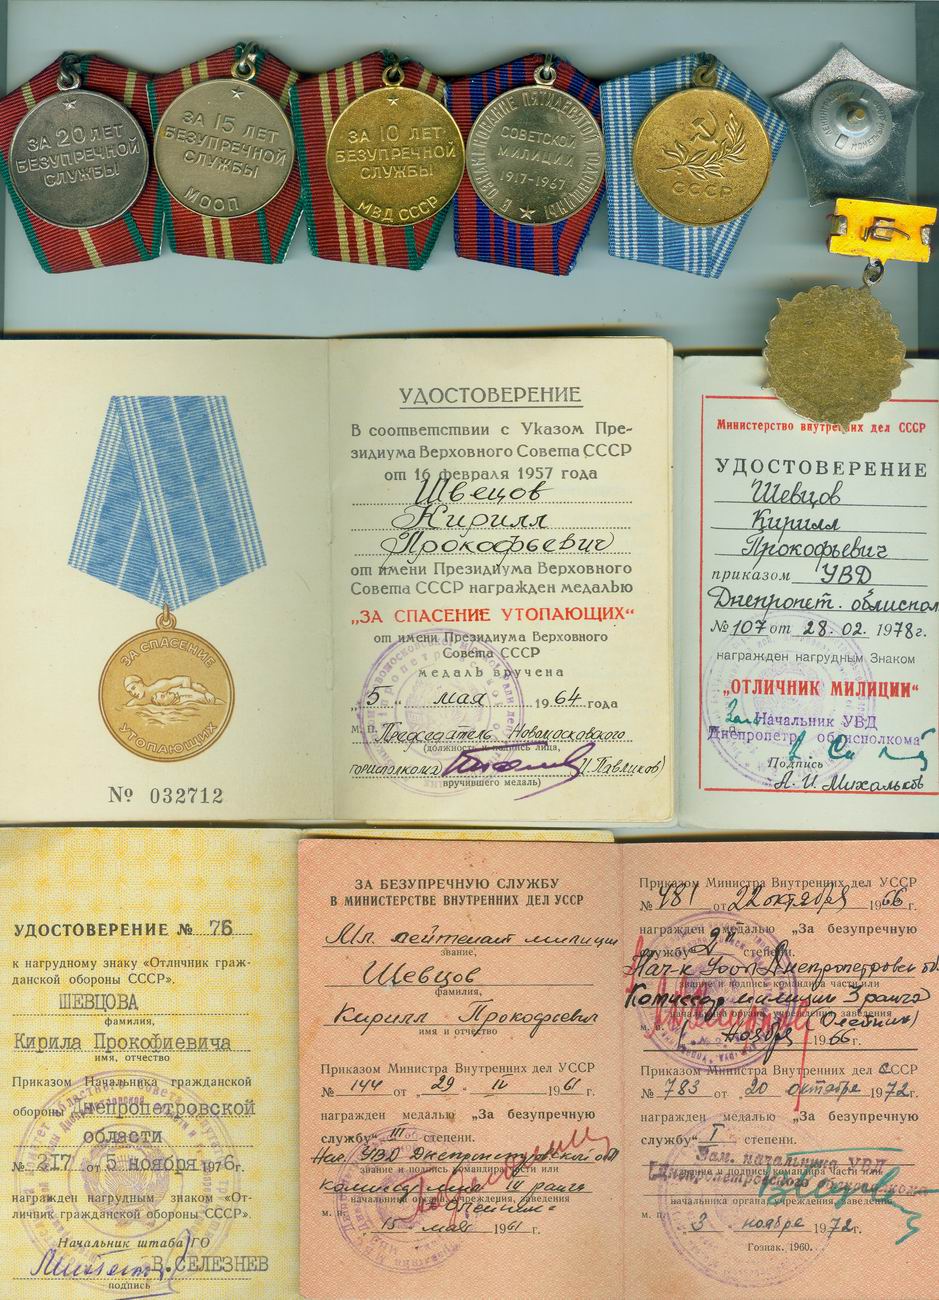 ЗА 20 ЛЕТ
БЕЗУПРЕЧНОЙ
СЛУЖБЫ
ЗА 15 ЛЕТ
БЕЗУПРЕЧНОЙ
СЛУЖБЫ
МООП
ЗА 10 ЛЕТ
БЕЗУПРЕЧНОЙ
СЛУЖБЫ
МВД СССР
В ОЗНАМЕНОВАНИЕ ПЯТИДЕСЯТОЙ ГОДОВЩИНЫ
СОВЕТСКОЙ
МИЛИЦИИ
1917-1967
СССР
ЗА СПАСЕНИЕ
УТОПАЮЩИХ
№ 032712
УДОСТОВЕРЕНИЕ
В соответствии с Указом Пре-
зидиума Верховного Совета СССР
от 16 февраля 1957 года
Швецов
Кирилл
Прокофьевич
от имени Президиума Верховного
Совета СССР награжден медалью
„ЗА СПАСЕНИЕ УТОПАЮЩИХ“
от имени Президиума Верховного
Совета СССР
медаль вручена
„5 “ мая 1964 года
М. П. Председатель Новомосковского
(должность и подпись лица,
горисполкома И. Павликов)
вручившего медаль)
Министерство внутренних дел СССР
УДОСТОВЕРЕНИЕ
Шевцов
Кирилл
Прокофьевич
приказом УВД
Днепропет. облиспол
№ 107 от 28. 02. 1978 г.
награжден нагрудным Знаком
„ОТЛИЧНИК МИЛИЦИИ“
Зам. Начальник УВД
Днепропетр. облисполкома
Подпись
А. И. Михальков
УДОСТОВЕРЕНИЕ № 76
к нагрудному знаку «Отличник граж-
данской обороны СССР».
ШЕВЦОВА
фамилия,
Кирила Прокофиевича
имя, отчество
Приказом Начальника гражданской
обороны Днепропетровской
области
№ 217 от 5 ноября 1976г.
награжден нагрудным знаком «От-
личник гражданской обороны СССР».
Начальник штаба ГО
В. СЕЛЕЗНЕВ
подпись
ЗА БЕЗУПРЕЧНУЮ СЛУЖБУ
В МИНИСТЕРСТВЕ ВНУТРЕННИХ ДЕЛ УССР
Мл. лейтенант милиции
звание,
Шевцов
фамилия,
Кирилл Прокофиевич
имя и отчество
Приказом Министра Внутренних дел УССР
№ 144 от „29 “ IV 1961 г.
награжден медалью „За безупречную
службу“ III степени.
Нач. УВД Днепропетровской обл
звание и подпись командира части или
комиссар милиции III ранга
начальника органа, учреждения, заведения
м. п. Олейник
15 мая 1961 г.
Приказом Министра Внутренних дел УССР
№ 481 от 22 октября 1966 г.
награжден медалью „За безупречную
службу“ 2й степени.
Нач-к Уооп Днепропетровск об
звание и подпись командира части или
Комиссар милиции 3 ранга
начальника органа учреждения заведения
м. п. Олейник)
ноября 1966 г.
Приказом Министра Внутренних дел СССР
№ 783 от „20 “ октября 1972 г.
награжден медалью „За безупречную
службу“ I степени.
Зам. начальника УВД
звание и подпись командира части или
Днепропетровского облисполкома
начальника органа, учреждения, заведения
м. п.
3 ноября 1972 г.
Гознак. 1960.